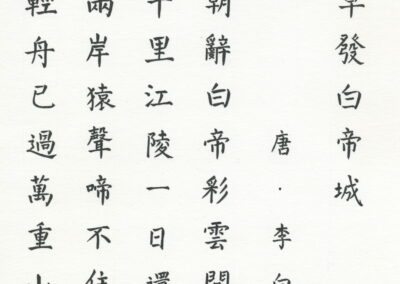 早發白帝城
唐．李白
朝辭白帝彩雲間
千里江陵一日還
兩岸猿聲啼不住
輕舟已過萬重山